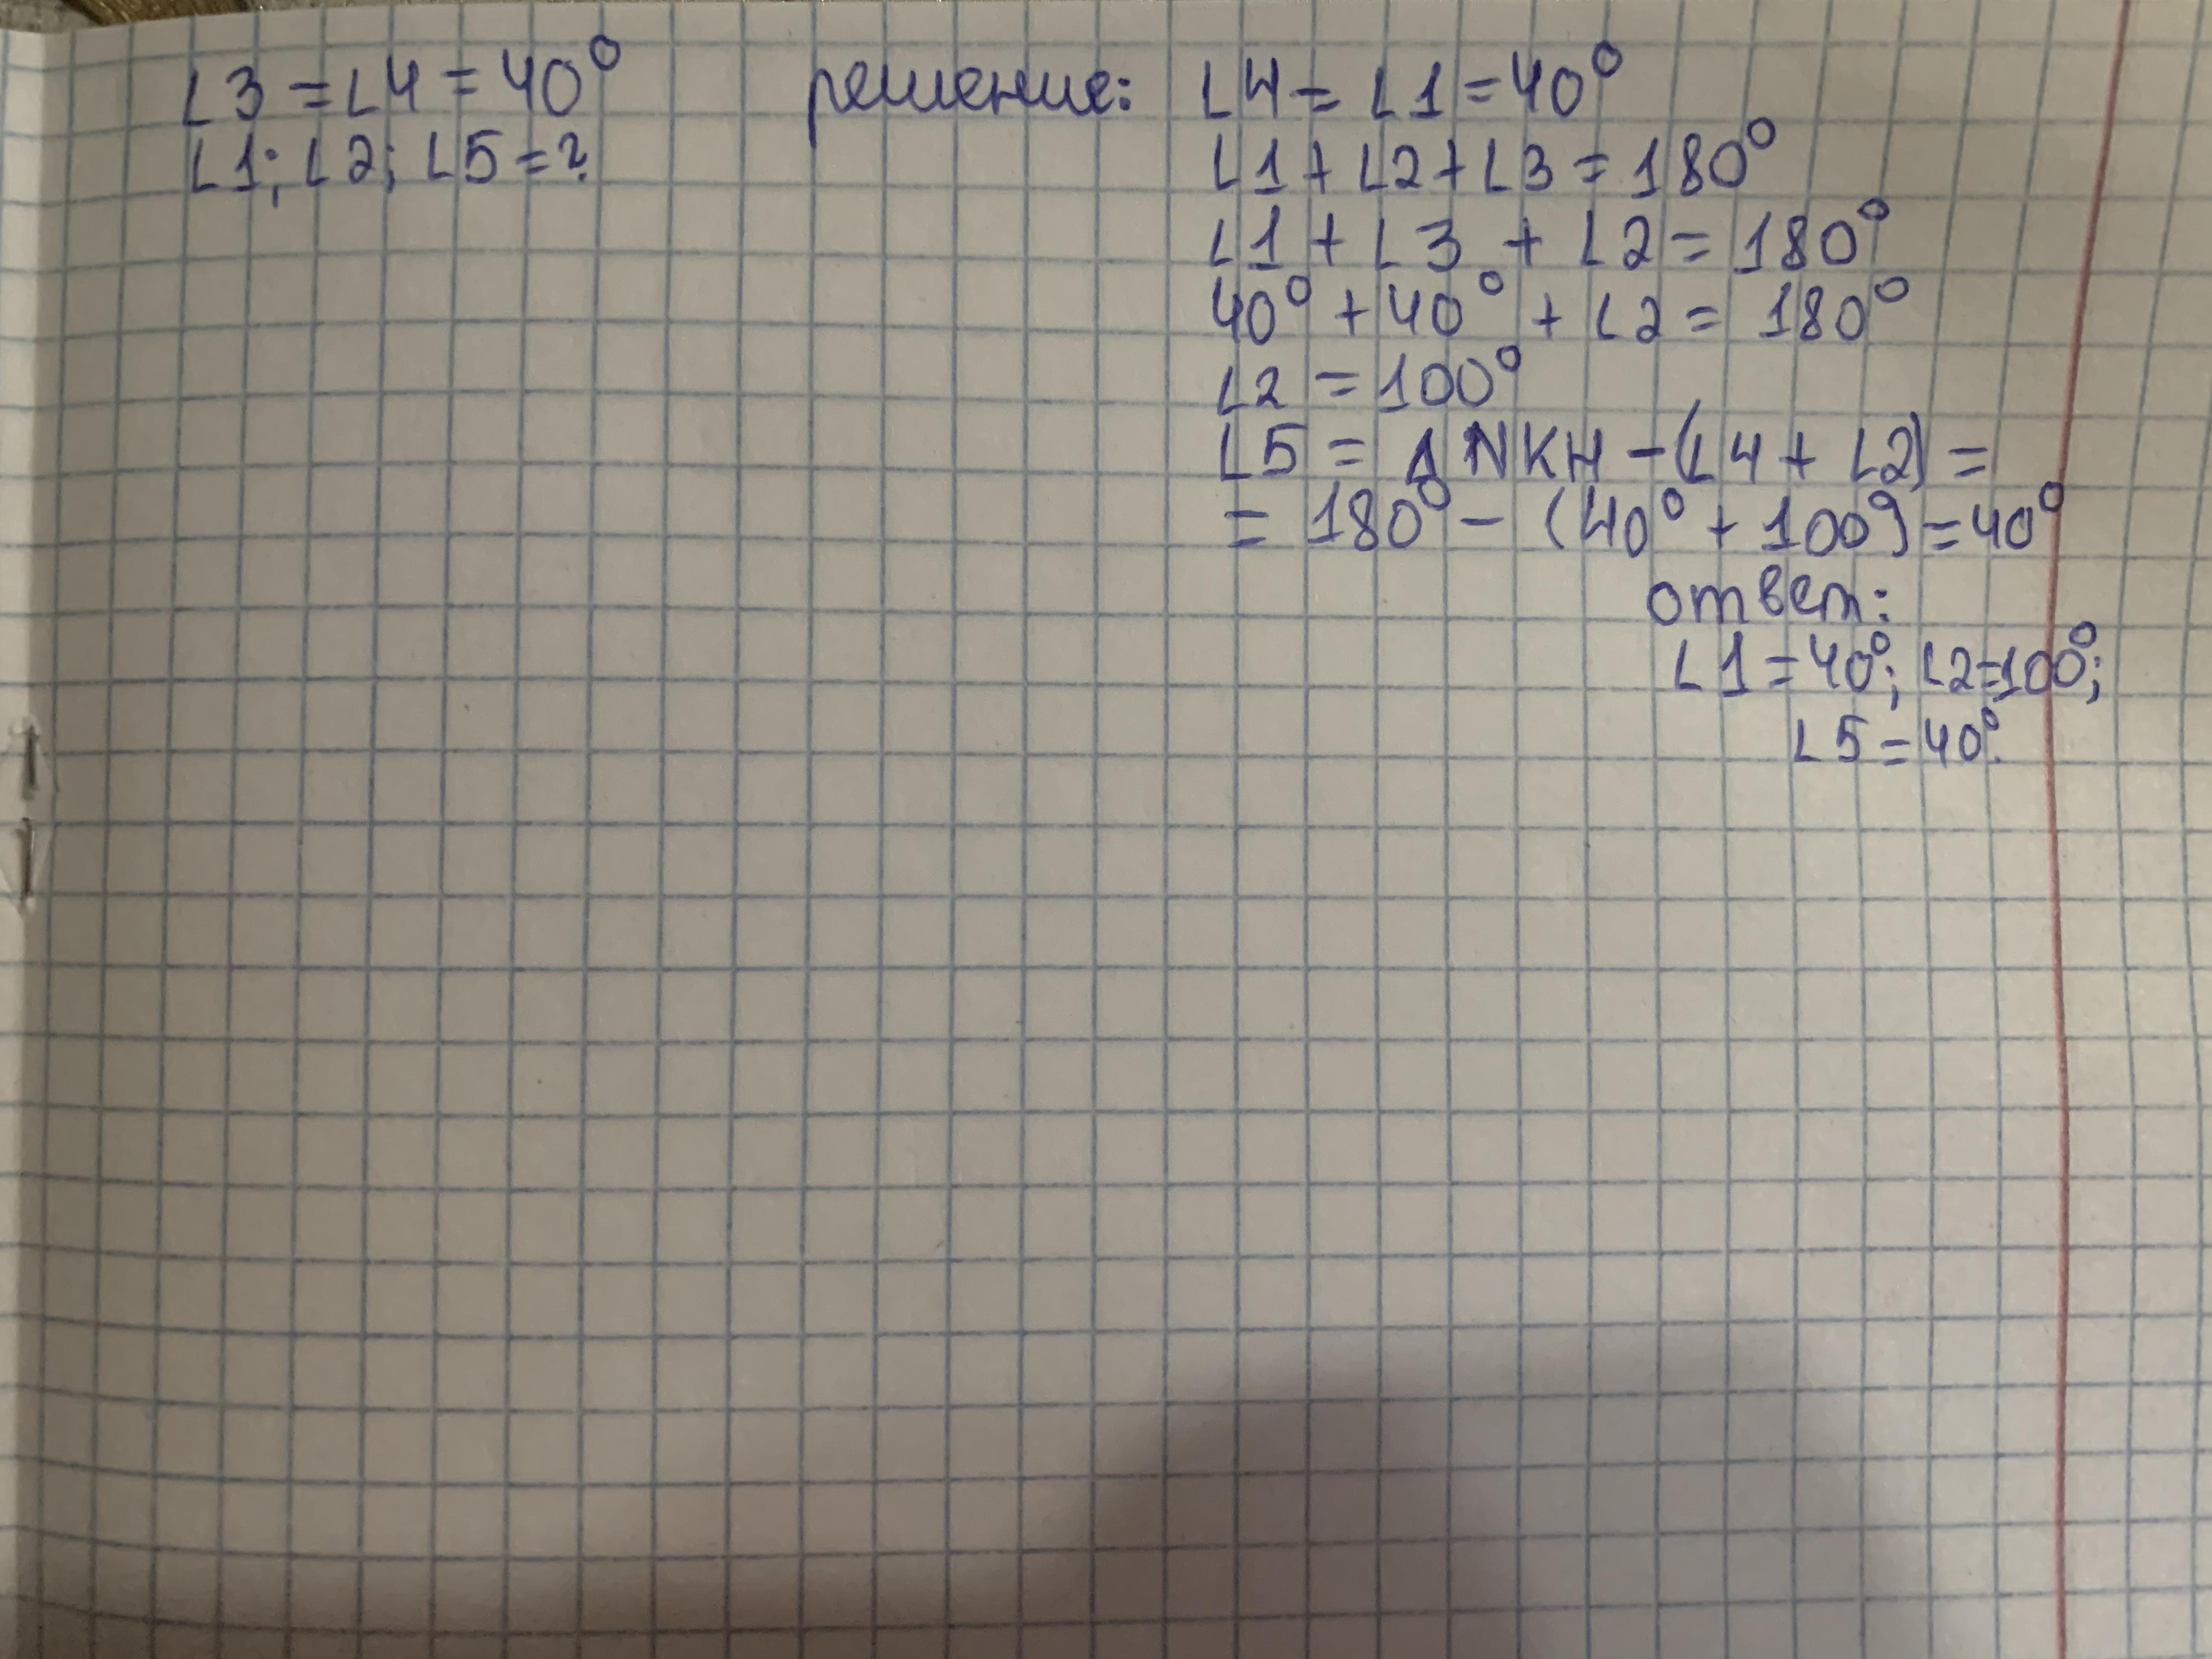 ∠3 = ∠4 = 40°
∠1; ∠2; ∠5 = ?
решение: ∠4 = ∠1 = 40°
∠1 + ∠2 + ∠3 = 180°
∠1 + ∠3 + ∠2 = 180°
40° + 40° + ∠2 = 180°
∠2 = 100°
∠5 = Δ NKH - (∠4 + ∠2) =
= 180° - (40° + 100°) = 40°
ответ:
∠1 = 40°; ∠2 = 100°;
∠5 = 40°.